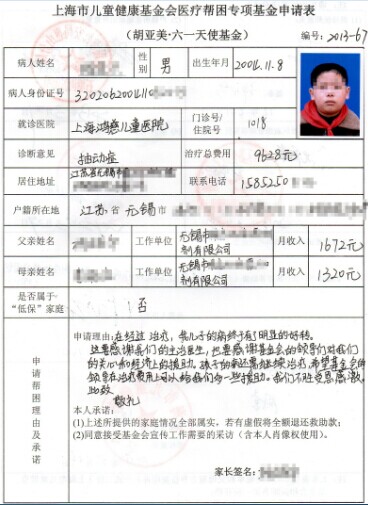 上海市儿童健康基金会医疗帮困专项基金申请表
（胡亚美·六一天使基金） 编号：2013-67
病人姓名 性别 男 出生年月 2004.11.8
病人身份证号 3202062004110
就诊医院 上海鸿慈儿童医院 门诊号/住院号 1018
诊断意见 抽动症 治疗总费用 9628元
居住地址 江苏省无锡市 联系电话 1585250
户籍所在地 江苏省 无锡 市
父亲姓名 工作单位 无锡市 制有限公司 月收入 1672元
母亲姓名 工作单位 无锡市 制有限公司 月收入 1320元
是否属于“低保”家庭 否
申请帮困理由及承诺
申请理由：在经过治疗，我儿子的病终于有明显的好转。
这要感谢我们的主治医生，也要感谢基金会的领导们对我们
的关心和经济上的援助。孩子的病还要继续治疗，希望基金会的
领导在治疗费用上可以给我们多一些援助。我们不胜感激。
此致
敬礼
本人承诺：
(1)上述所提供的家庭情况全部属实，若有虚假将全额退还救助款；
(2)同意接受基金会宣传工作需要的采访（含本人肖像权使用）。
家长签名：